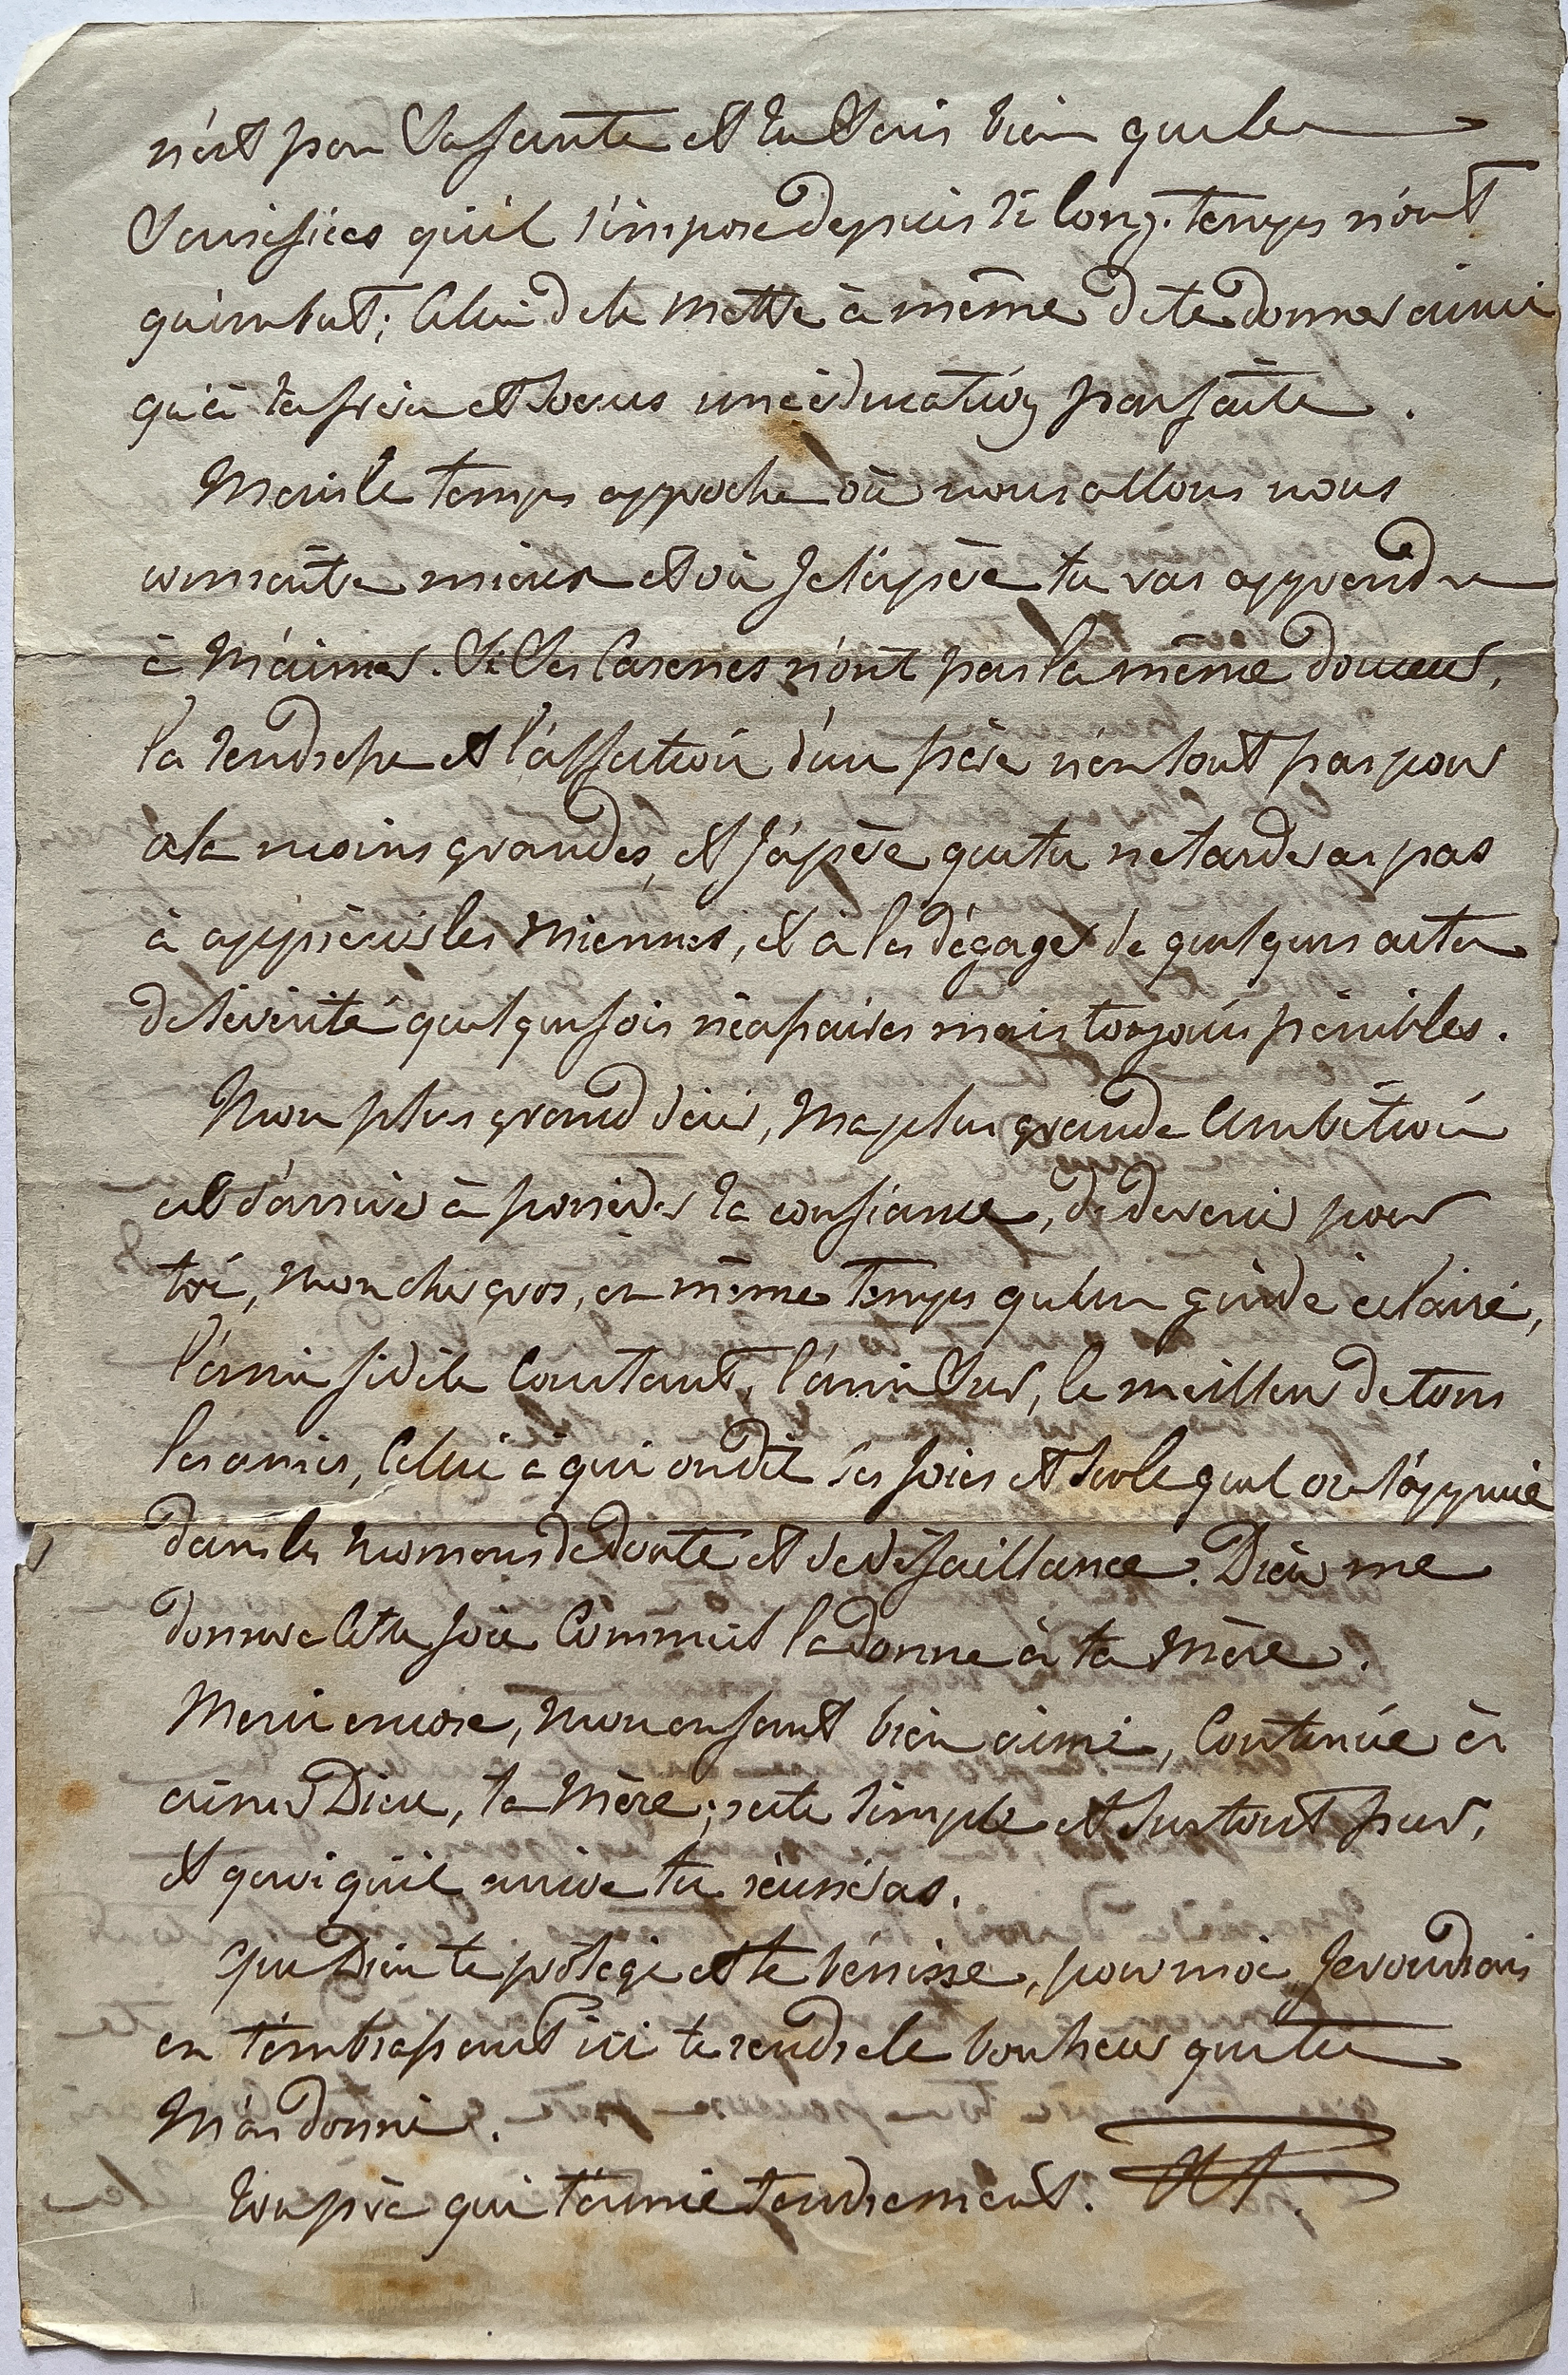 n'est pas Sa santé et tu Sais bien que les
Sacrifices qu'il s'impose depuis si long-temps n'ont
qu'un but; Celui de le Mettre à même de te donner ainsi
qu'à tes frère et soeurs une éducation parfaite.
Mais le temps approche où nous allons nous
connaître mieux et où Je l'espère tu vas apprendre
à M'aimer. Si Ses Caresses n'ont pas la même douceur,
la tendresse et l'affection d'un père n'en sont pas pour
cela moins grandes, et J'espère que tu ne tarderas pas
à apprécier les Miennes, et à les dégager de quelques actes
de sévérité quelquefois nécessaires mais toujours pénibles.
Mon plus grand désir, Ma plus grande Ambition
est d'arriver à posséder ta confiance, de devenir pour
toi, Mon cher gros, en même Temps qu'un guide éclairé,
l'ami fidèle Constant, l'ami Sur, le meilleur de tous
les amis, Celui à qui on dit ses Joies et sur lequel on s'appuie
dans les momens de doute et de défaillance. Dieu me
donnera Cette Joie Comme il la donne à ta Mère.
Merci encore, Mon enfant bien aimé, Continue à
aimer Dieu, ta Mère; reste simple et surtout pur,
et quoiqu'il arrive tu réussiras.
Que Dieu te protège et te bénisse, pour moi Je voudrais
en t'embrassant ici te rendre le bonheur que tu
M'as donné.
Ton père qui t'aime tendrement.